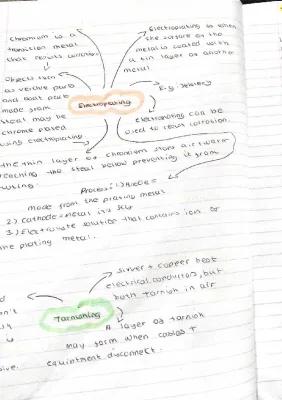 Chromium is a
transition metal
that resists corrosion
Objects such
as vehicle parts
and boat parts
made from
steel may be
chrome plated
using electroplating
Electroplating is when
the surface of the
metal is coated with
a thin layer of another
metal
Electroplating
E.g. Jewelery
electroplating can be
used to resist corrosion.
The thin layer of chromium stops air & water
reaching the steel below preventing it from
rusting
Process: 1) Anode =
made from the plating metal
2) Cathode = metal
3) Electrolyte solution that contains ions of
the plating metal.
silver + copper best
electrical conductors, but
both tarnish in air
Tarnishing
A layer of tarnish
may form when cables +
equiptment disconnect.